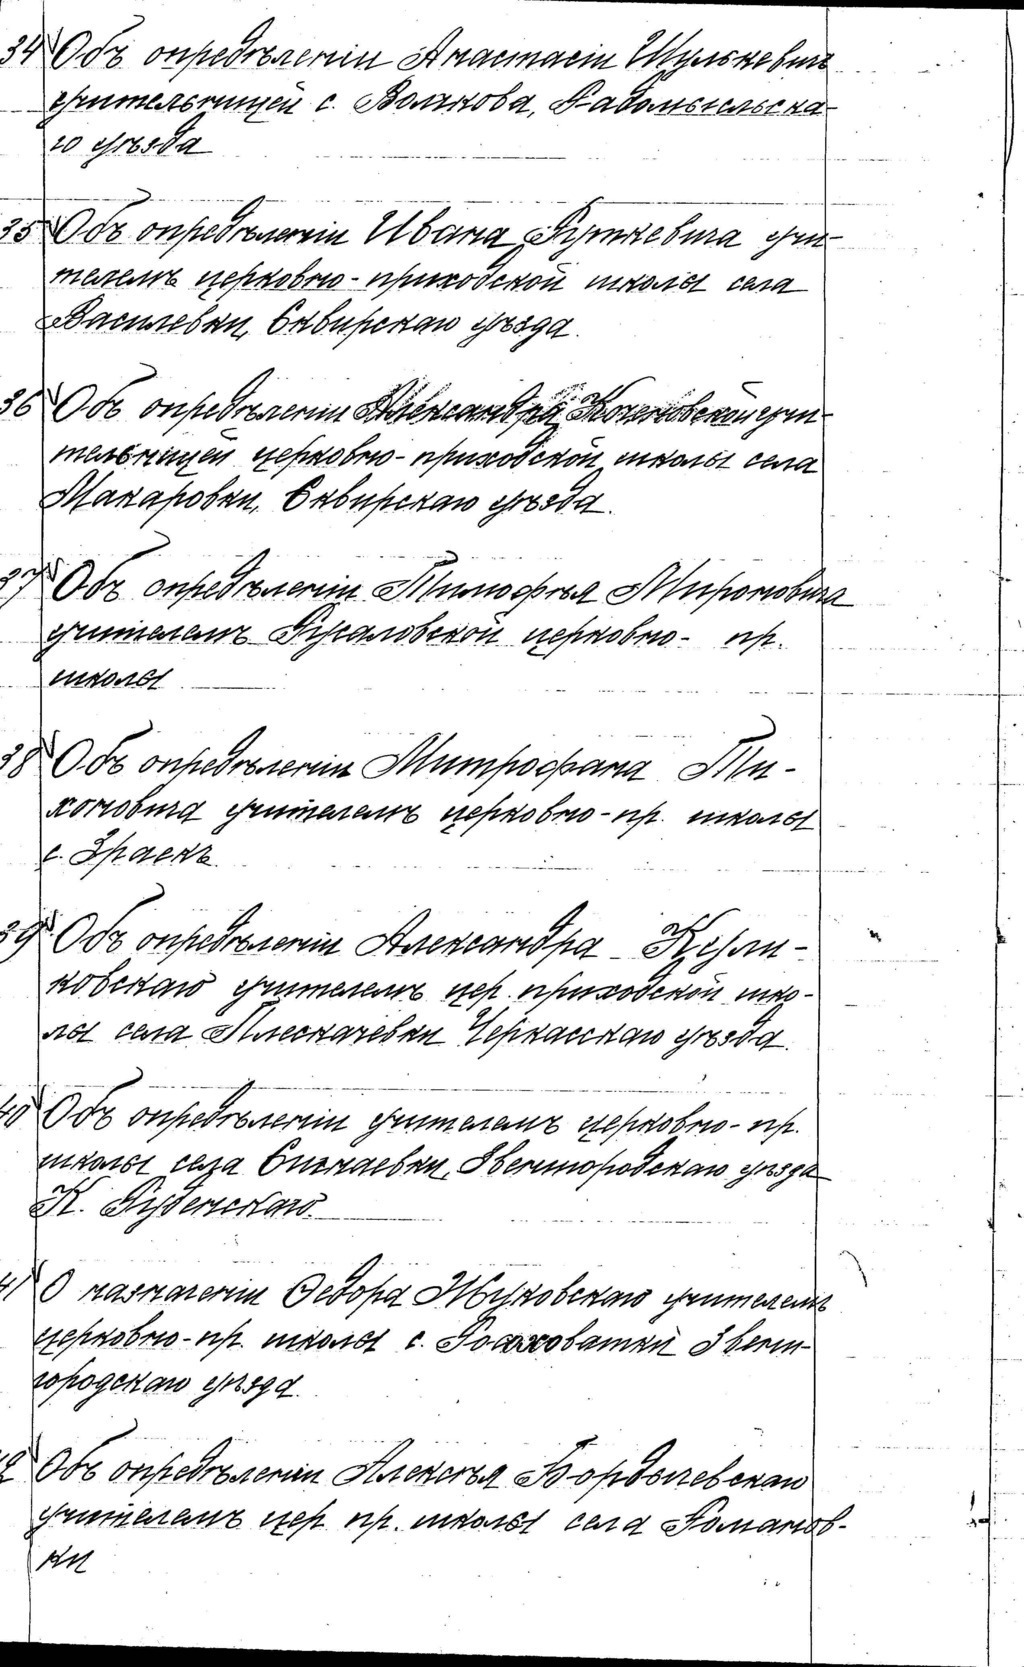 34 Объ опредѣленіи Анастасіи Шулькевичъ
учительницей с. Волчкова, Радомысльска-
го уѣзда
35 Объ опредѣленіи Ивана Руткевича учи-
телемъ церковно-приходской школы села
Василевки, Сквирскаго уѣзда.
36 Объ опредѣленіи Александры учи-
тельницей церковно-приходской школы села
Макаровки, Сквирскаго уѣзда.
37 Объ опредѣленіи Тимофѣя Мироновича
учителемъ церковно- пр.
школы
38 Объ опредѣленіи Митрофана Ти-
хоновича учителемъ церковно-пр. школы
с.
39 Объ опредѣленіи Александра Кули-
ковскаго учителемъ цер. приходской шко-
лы села Плескачевки Черкасскаго уѣзда.
40 Объ опредѣленіи учителемъ церковно-пр.
школы села Звенигородскаго уѣзда
К. Руденскаго.
41 О назначеніи Ѳедора Жуковскаго учителемъ
церковно-пр. школы с. Росоховатки Звени-
городскаго уѣзда
42 Объ опредѣленіи Алексѣя Бордашевскаго
учителемъ цер. пр. школы села Романов-
ки